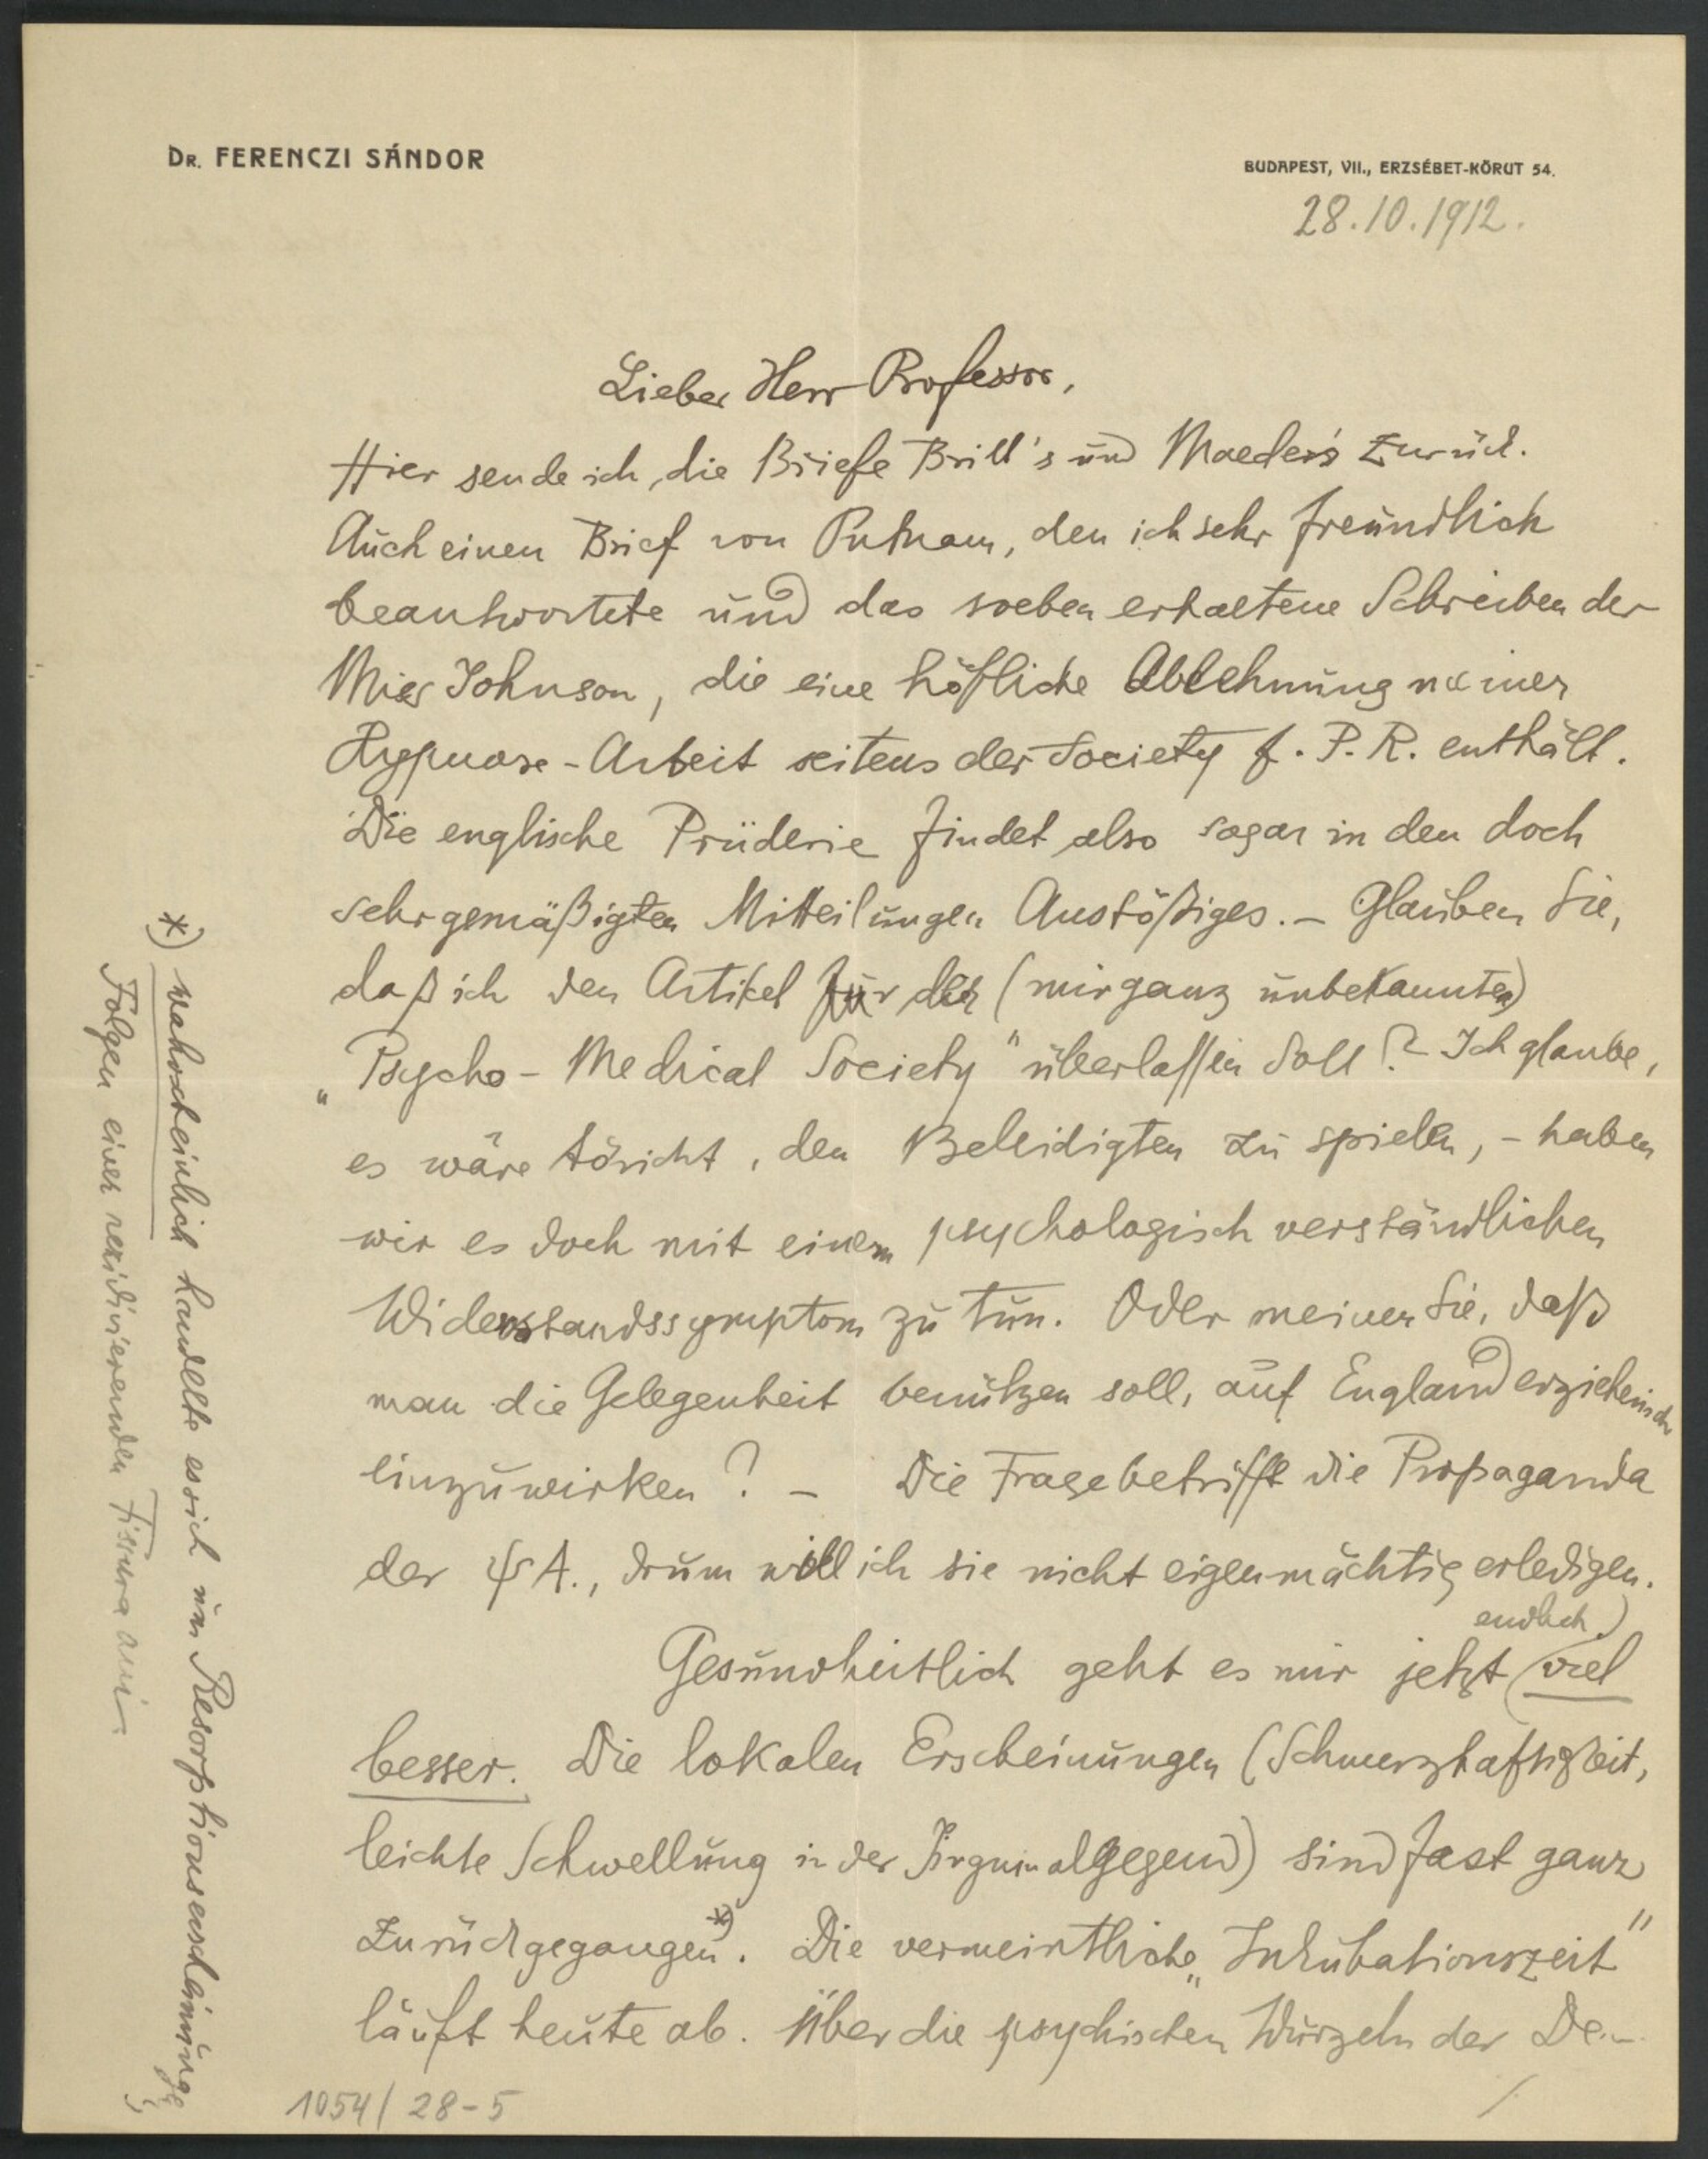 DR. FERENCZI SÁNDOR
BUDAPEST, VII., ERZSÉBET-KÖRUT 54.
28.10.1912.
Lieber Herr Professor,
Hier sende ich, die Briefe Brill's und Maeder's zurück.
Auch einen Brief von Putnam, den ich sehr freundlich
beantwortete und das soeben erhaltene Schreiben der
Miss Johnson, die eine höfliche Ablehnung meiner
Hypnose-Arbeit seitens der Society f. P. R. enthält.
Die englische Prüderie findet also sogar in den doch
sehr gemäßigten Mitteilungen Anstößiges. – Glauben Sie,
daß ich den Artikel für der (mir ganz unbekannten)
„Psycho-Medical Society" überlassen soll? Ich glaube,
es wäre töricht, den Beleidigten zu spielen, – haben
wir es doch mit einem psychologisch verständlichen
Widerstandssymptom zu tun. Oder meinen Sie, daß
man die Gelegenheit benützen soll, auf England erzieherisch
einzuwirken? – Die Frage betrifft die Propaganda
der ψA., drum will ich sie nicht eigenmächtig erledigen.
Gesundheitlich geht es mir jetzt (endlich) viel
besser. Die lokalen Erscheinungen (Schmerzhaftigkeit,
leichte Schwellung in der Inguinalgegend) sind fast ganz
zurückgegangen*). Die vermeintliche „Inkubationszeit"
läuft heute ab. Über die psychischen Wurzeln der De-
*) wahrscheinlich handelte es sich um Resorptionserscheinungen
Folgen einer rezidivierenden Fissura ani.
1054/28-5